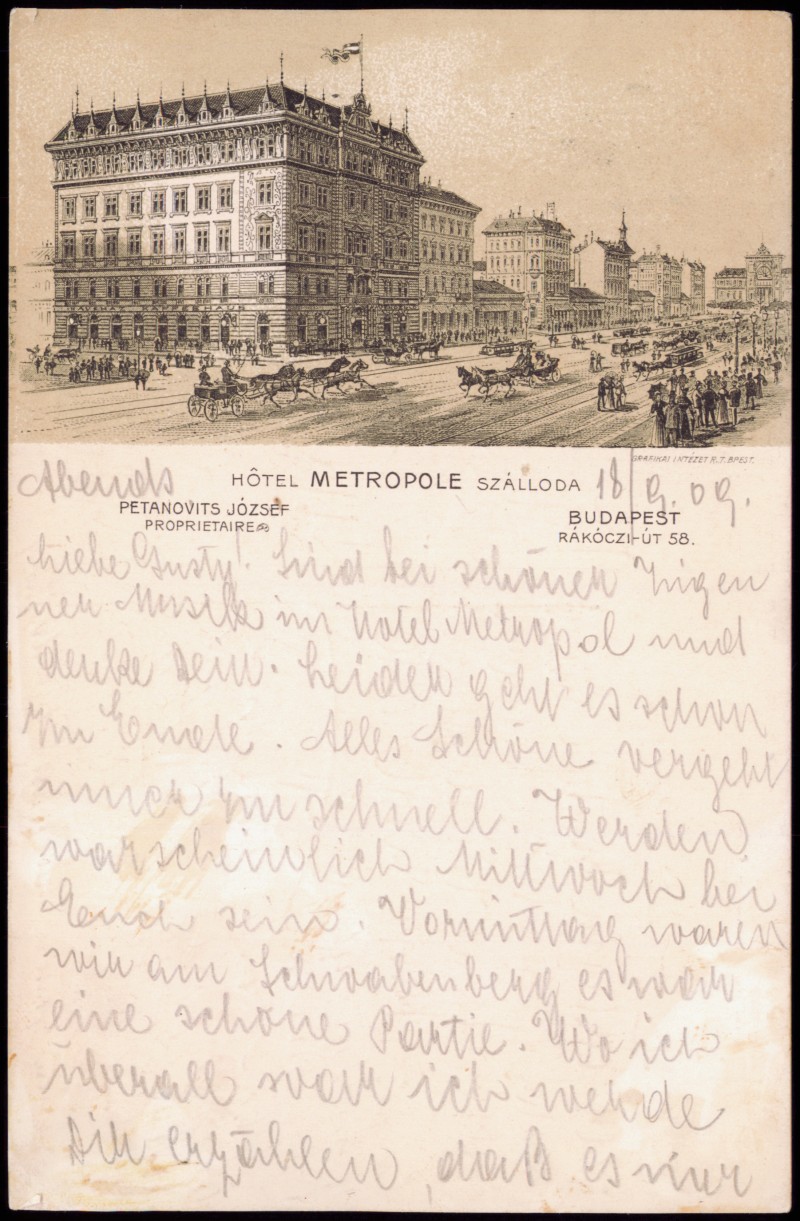 GRAFIKAI INTÉZET R.T. BPEST.
Abends HÔTEL METROPOLE SZÁLLODA 18/9.09.
PETANOVITS JÓZSEF
PROPRIETAIRE
BUDAPEST
RÁKÓCZI-ÚT 58.
Liebe Gusty! Sind bei schöner Zigeu
ner Musik im Hotel Metropol und
denke Dein. Leider geht es schon
zu Ende. Alles Schöne vergeht
immer zu schnell. Werden
warscheinlich Mittwoch bei
Euch sein. Vormittag waren
wir am Schwabenberg es war
eine schöne Partie. Wo ich
überall war ich werde
Dir erzählen, daß es nur